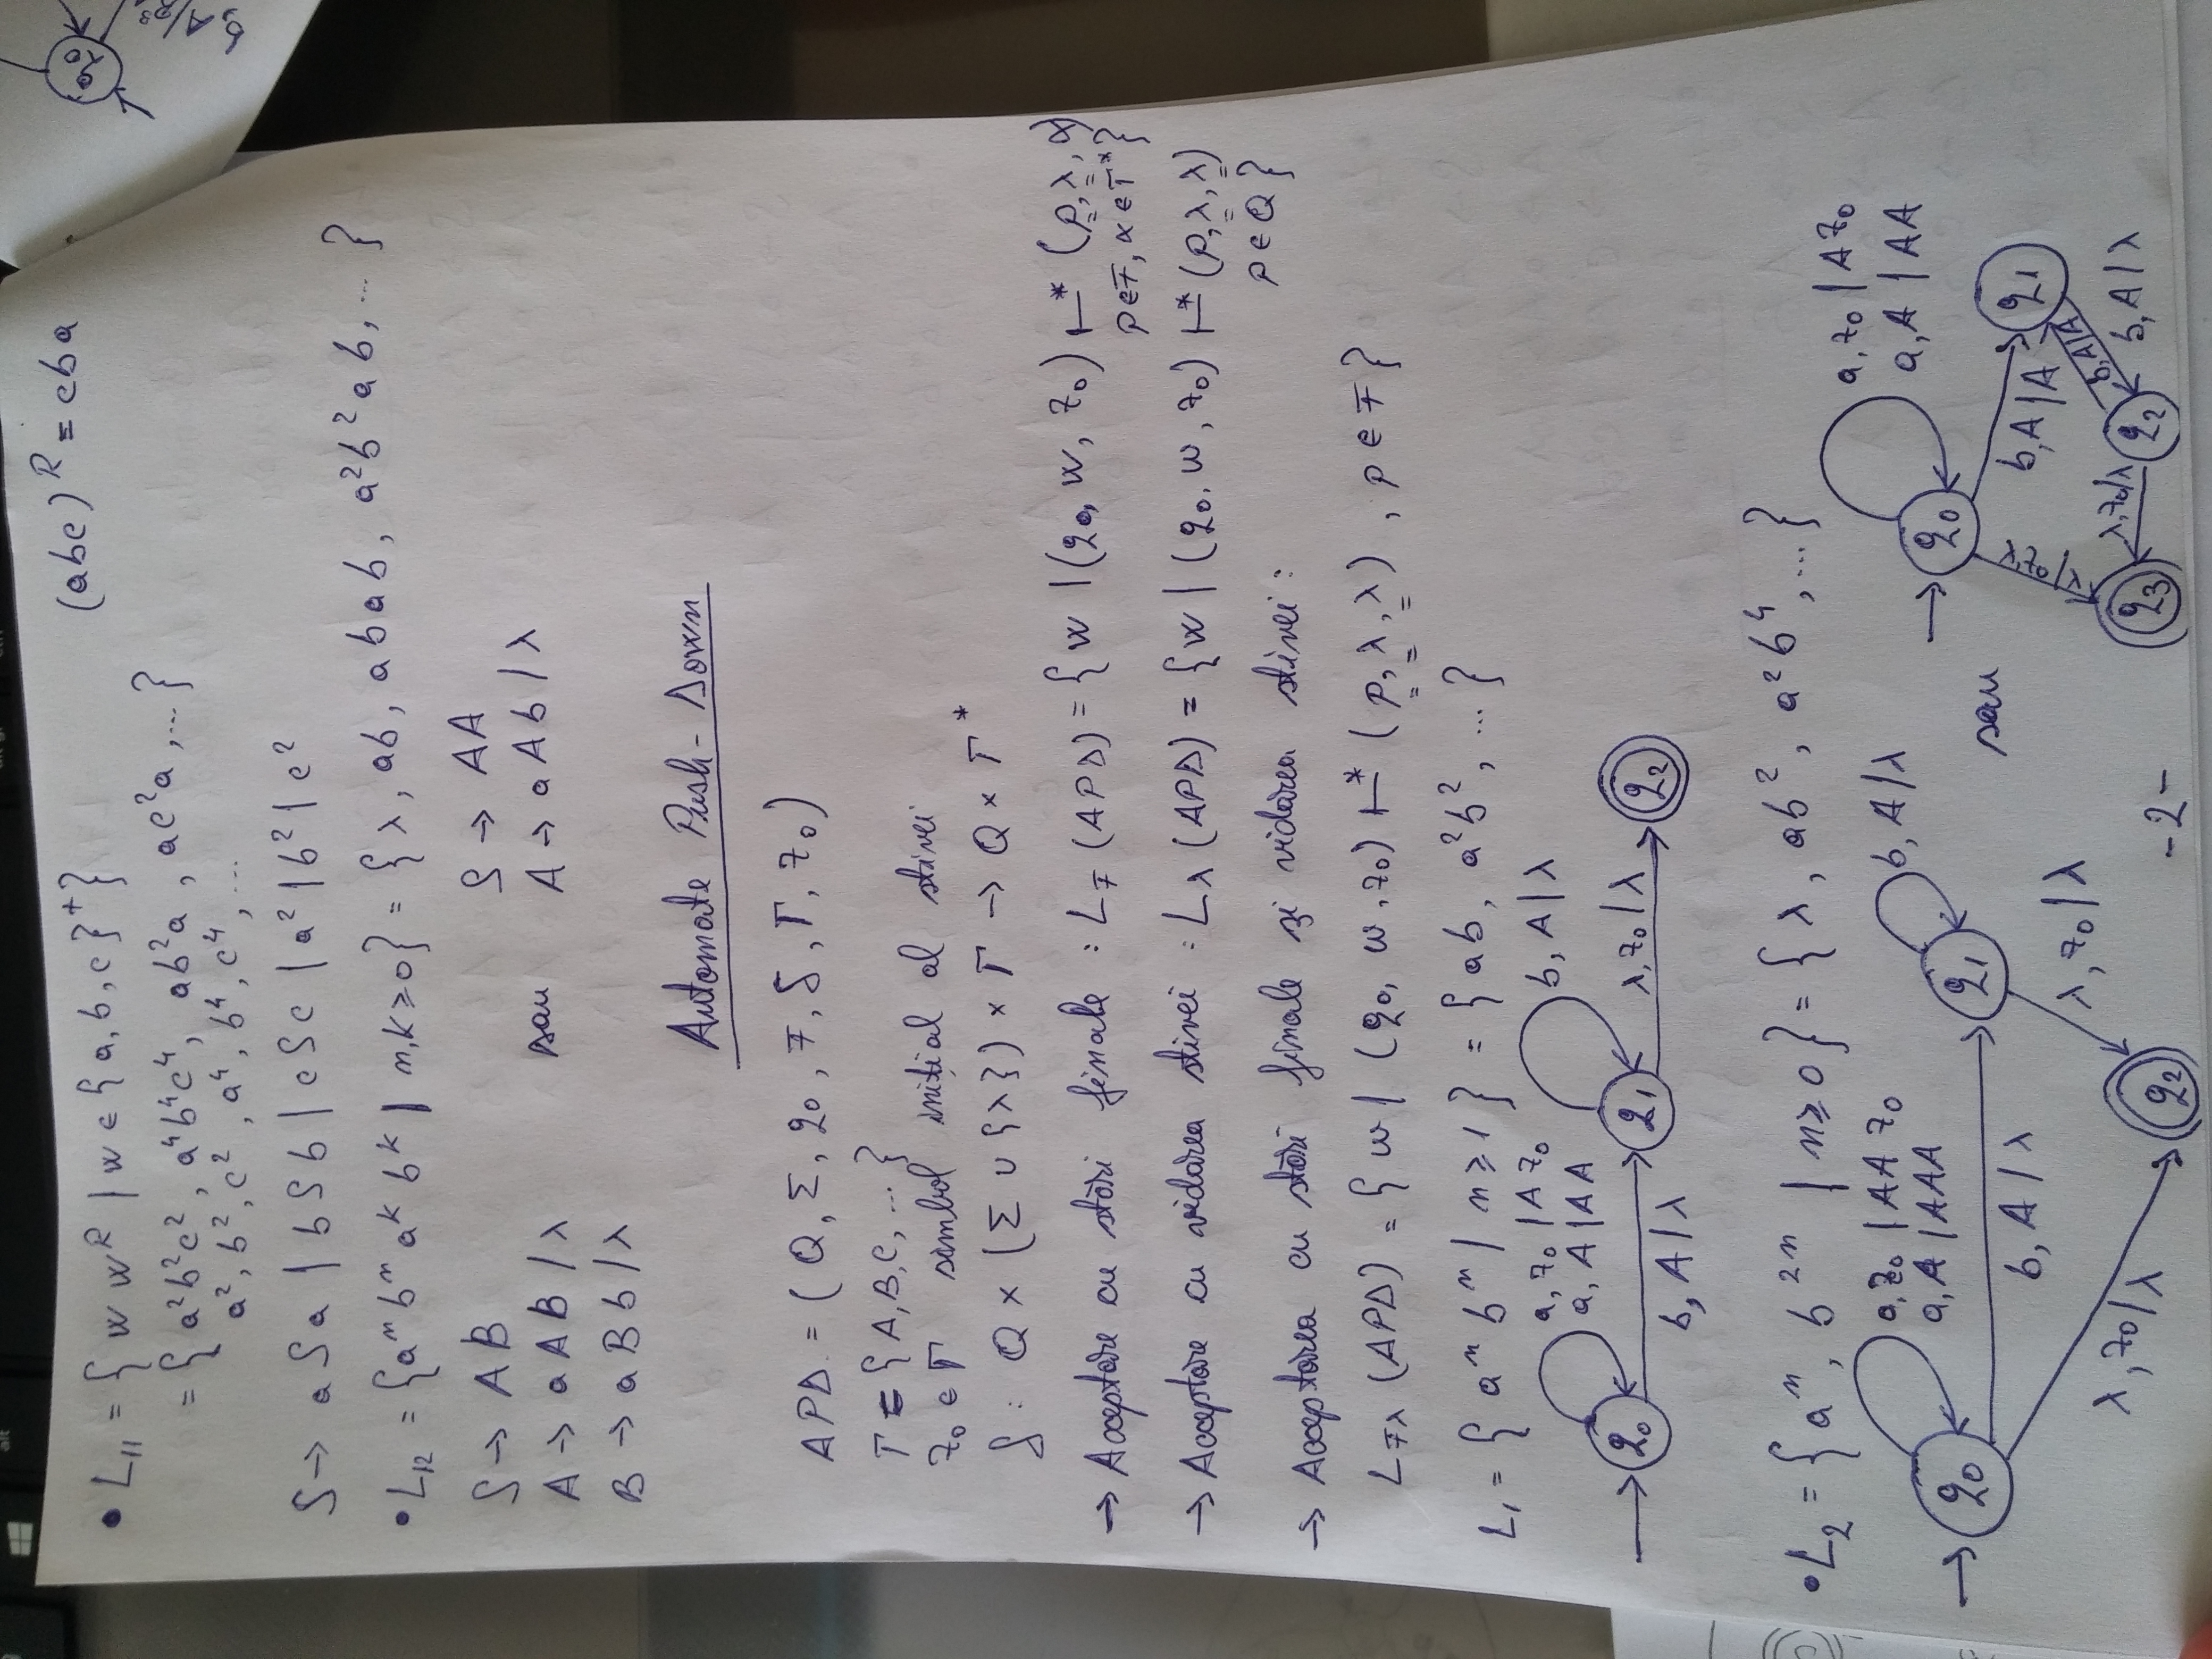 • L₁₁ = { w wᴿ / w ∈ {a, b, c}⁺ }    (abc)ᴿ = cba
= { a²b²c², a⁴b⁴c⁴, ab²a, ac²a, ... }
a², b², c², a⁴, b⁴, c⁴, ...
S → aSa | bSb | cSc | a² | b² | c²
• L₁₂ = {aⁿ bⁿ aᵏ bᵏ | n,k ≥ 0} = { λ, ab, abab, a²b²ab, ... }
S → AB    S → AA
A → aAB / λ    sau    A → aAb / λ
B → aBb / λ
Automate Push-Down
APD = ( Q, Σ, q₀, F, δ, Γ, z₀ )
Γ = { A, B, C, ... }
z₀ ∈ Γ simbol inițial al stivei
δ : Q × (Σ ∪ {λ}) × Γ → Q × Γ*
→ Acceptare cu stări finale : L_F (APD) = { w | (q₀, w, z₀) ⊢* (p, λ, α)
p∈F, α∈Γ* }
→ Acceptare cu vidarea stivei : Lλ (APD) = { w | (q₀, w, z₀) ⊢* (p, λ, λ)
p ∈ Q }
→ Acceptarea cu stări finale și vidarea stivei :
L_Fλ (APD) = { w / (q₀, w, z₀) ⊢* ( p, λ, λ ) , p ∈ F }
L₁ = { aⁿ bⁿ / n ≥ 1 } = { ab, a²b², ... }
a, z₀ / A z₀
a, A | AA
b, A / λ
q₀
q₁
q₂
b, A / λ
λ, z₀ / λ
• L₂ = { aⁿ, b²ⁿ | n ≥ 0 } = { λ, ab², a²b⁴, ... }
a, z₀ | AA z₀
a, A | AAA
b, A / λ
q₀
q₁
b, A / λ
λ, z₀ / λ
λ, z₀ / λ
q₂
sau
a, z₀ | A z₀
a, A | AA
q₀
b, A / A
q₁
λ, z₀ / λ
b, A / A
b, A / λ
q₂
λ, z₀ / λ
q₃
-2-
q₀
alt